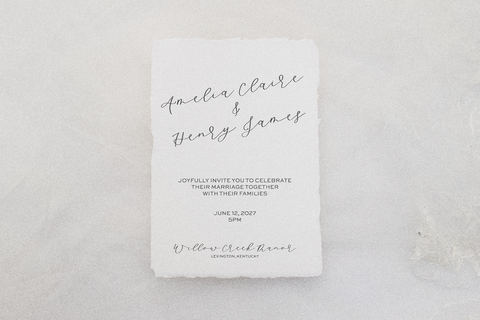 Amelia Claire
&
Henry James
JOYFULLY INVITE YOU TO CELEBRATE
THEIR MARRIAGE TOGETHER
WITH THEIR FAMILIES
JUNE 12, 2027
5PM
Willow Creek Manor
LEXINGTON, KENTUCKY